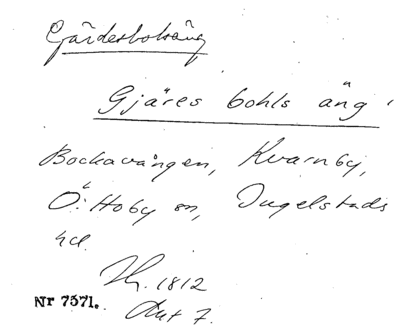 Gärdesbolsäng
Gjäres bohls äng
Bockavången, Kvarnby,
Ö. Hoby sn, Ingelstads
hd.
1812
Akt 7.
Nr 7371.